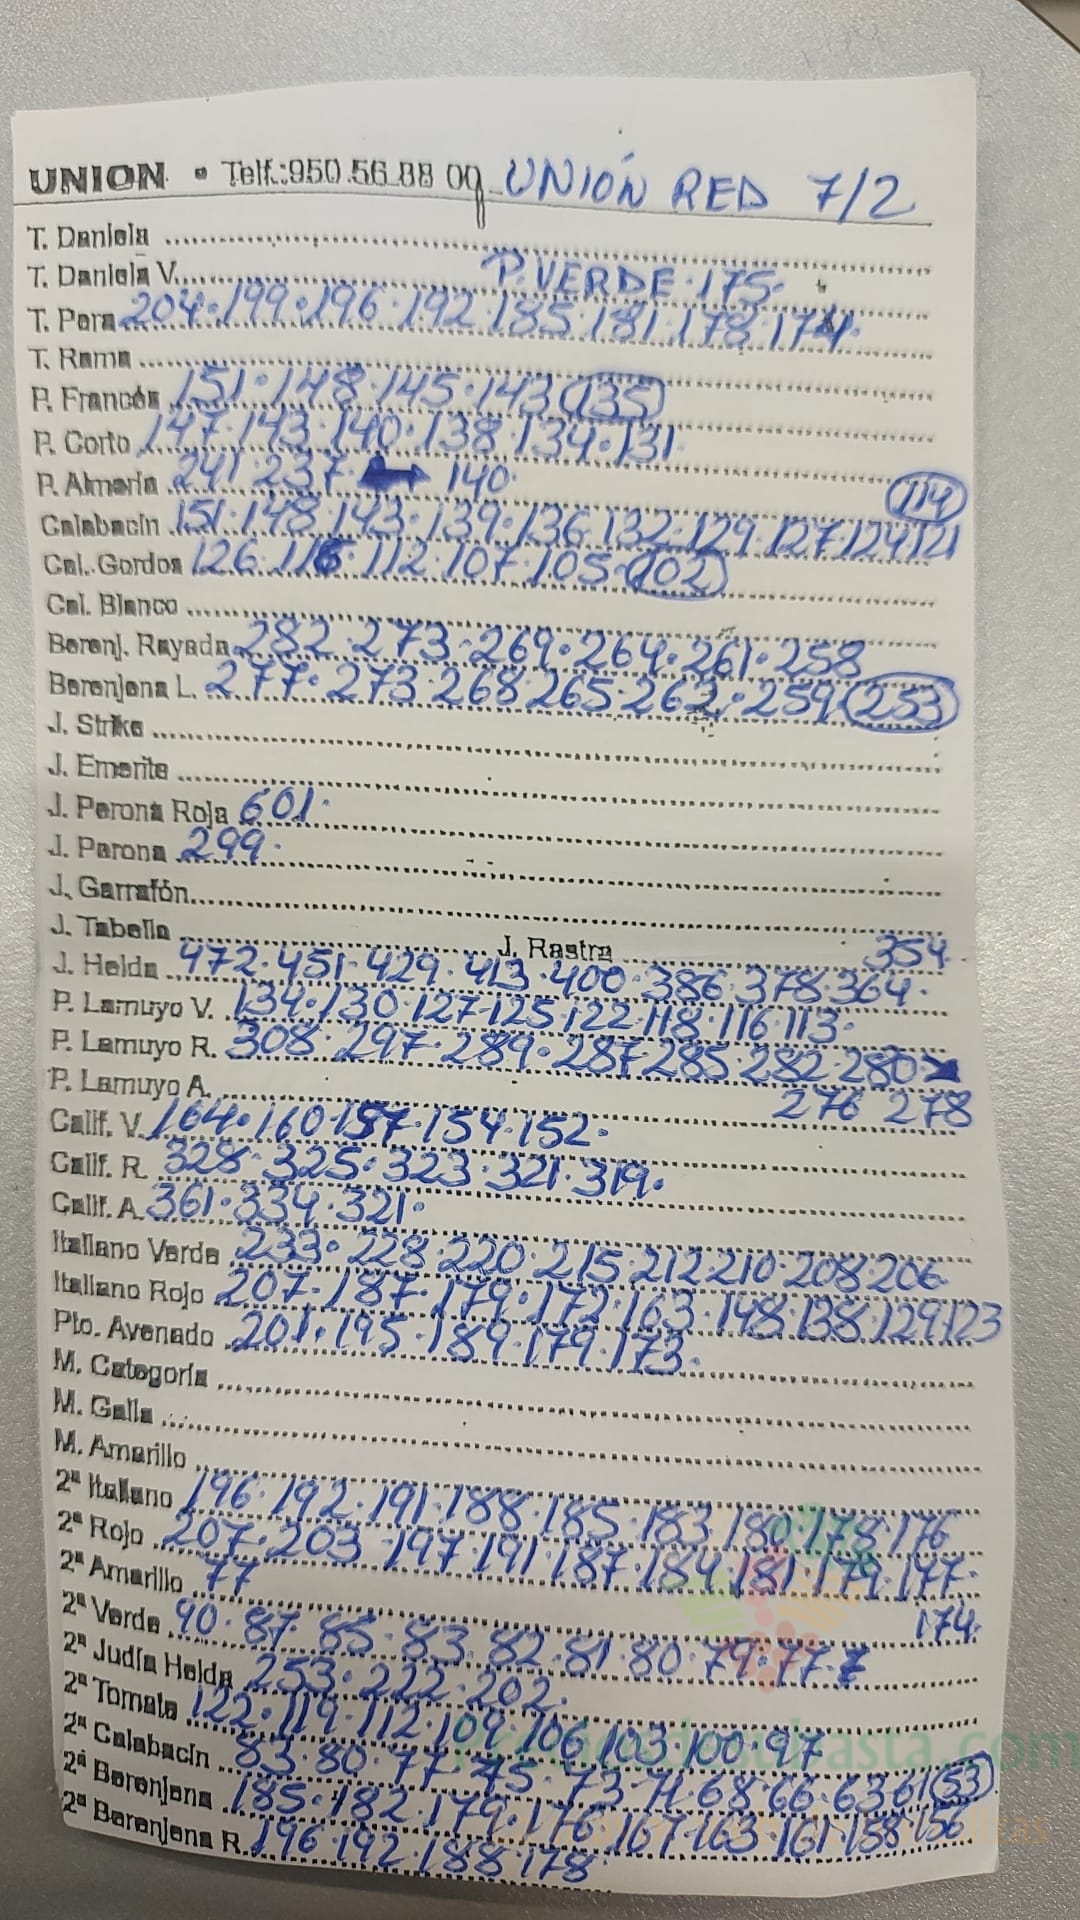 UNION • Telf.:950.56.88 09 UNIÓN RED 7/2
T. Daniela
T. Daniela V. P. VERDE·175·
T. Pera 204·199·196·192·185·181·178·174·
T. Rama
P. Francés 151·148·145·143 (135)
P. Corto 147·143·140·138·134·131
P. Almería 241·237 → 140· (114)
Calabacín 151·148·143·139·136·132·129·127·124·121
Cal. Gordos 126·116·112·107·105·(102)
Cal. Blanco
Berenj. Rayada 282·273·269·264·261·258
Berenjena L. 277·273·268·265·262·259 (253)
J. Strike
J. Emerite
J. Perona Roja 601·
J. Perona 299·
J. Garrafón
J. Tabella J. Rastra 354
J. Helda 472·451·429·413·400·386·378·364·
P. Lamuyo V. 134·130·127·125·122·118·116·113·
P. Lamuyo R. 308·297·289·287·285·282·280
P. Lamuyo A. 276 278
Calif. V. 164·160·157·154·152·
Calif. R. 328·325·323·321·319·
Calif. A. 361·334·321·
Italiano Verde 233·228·220·215·212·210·208·206·
Italiano Rojo 207·187·179·172·163·148·138·129·123
Pto. Avenado 201·195·189·179·173·
M. Categoría
M. Galia
M. Amarillo
2ª Italiano 196·192·191·188·185·183·180·178·176
2ª Rojo 207·203·197·191·187·184·181·179·177·
2ª Amarillo 77 174·
2ª Verde 90·87·85·83·82·81·80·79·77·
2ª Judía Helda 253·222·202·
2ª Tomate 122·119·112·109·106·103·100·97
2ª Calabacín 83·80·77·75·73·71·68·66·63·61 (53)
2ª Berenjena 185·182·179·176·167·163·161·158·156
2ª Berenjena R. 196·192·188·178·